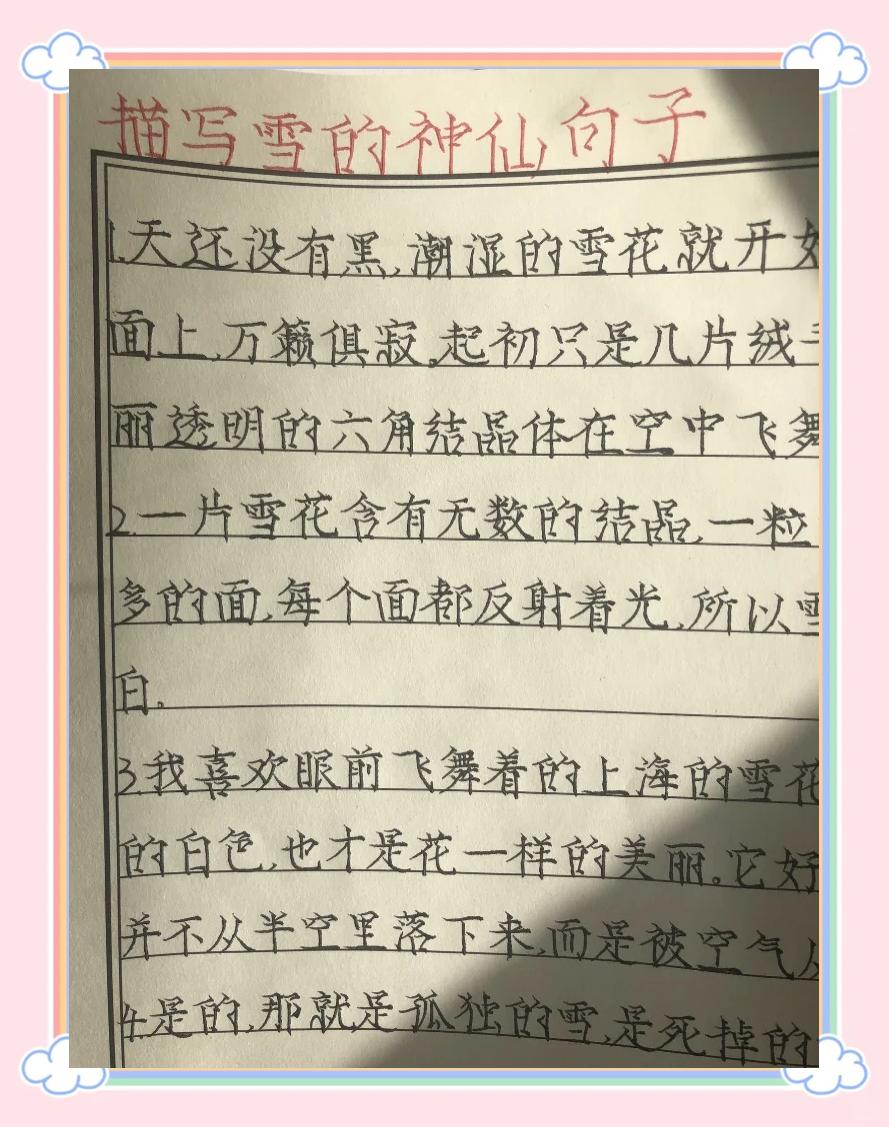 描写雪的神仙句子
1.天还没有黑,潮湿的雪花就开
面上,万籁俱寂。起初只是几片绒
丽透明的六角结晶体在空中飞舞
2.一片雪花含有无数的结晶,一粒
多的面,每个面都反射着光,所以雪
白。
3.我喜欢眼前飞舞着的上海的雪花
的白色,也才是花一样的美丽。它好
并不从半空里落下来,而是被空气从
4.是的,那就是孤独的雪,是死掉的